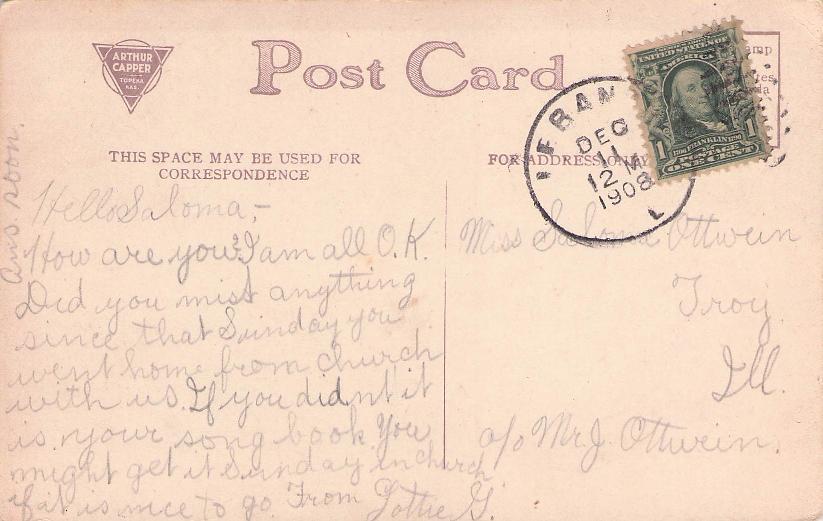 ARTHUR
CAPPER
TOPEKA
KAS.
Post Card
THIS SPACE MAY BE USED FOR
CORRESPONDENCE
FOR ADDRESS ONLY
UNITED STATES OF
AMERICA
1706 FRANKLIN 1790
1 1
POSTAGE
ONE CENT
DEC
11
12 M
1908
Ans. soon.
Hello Saloma,-
How are you? I am all O.K.
Did you mist anything
since that Sunday you
went home from church
with us. If you didnt it
is your song book You
might get it Sunday in church
if it is nice to go. From Lottie G.
Miss Saloma Ottwein
Troy
Ill.
c/o Mr J. Ottwein.